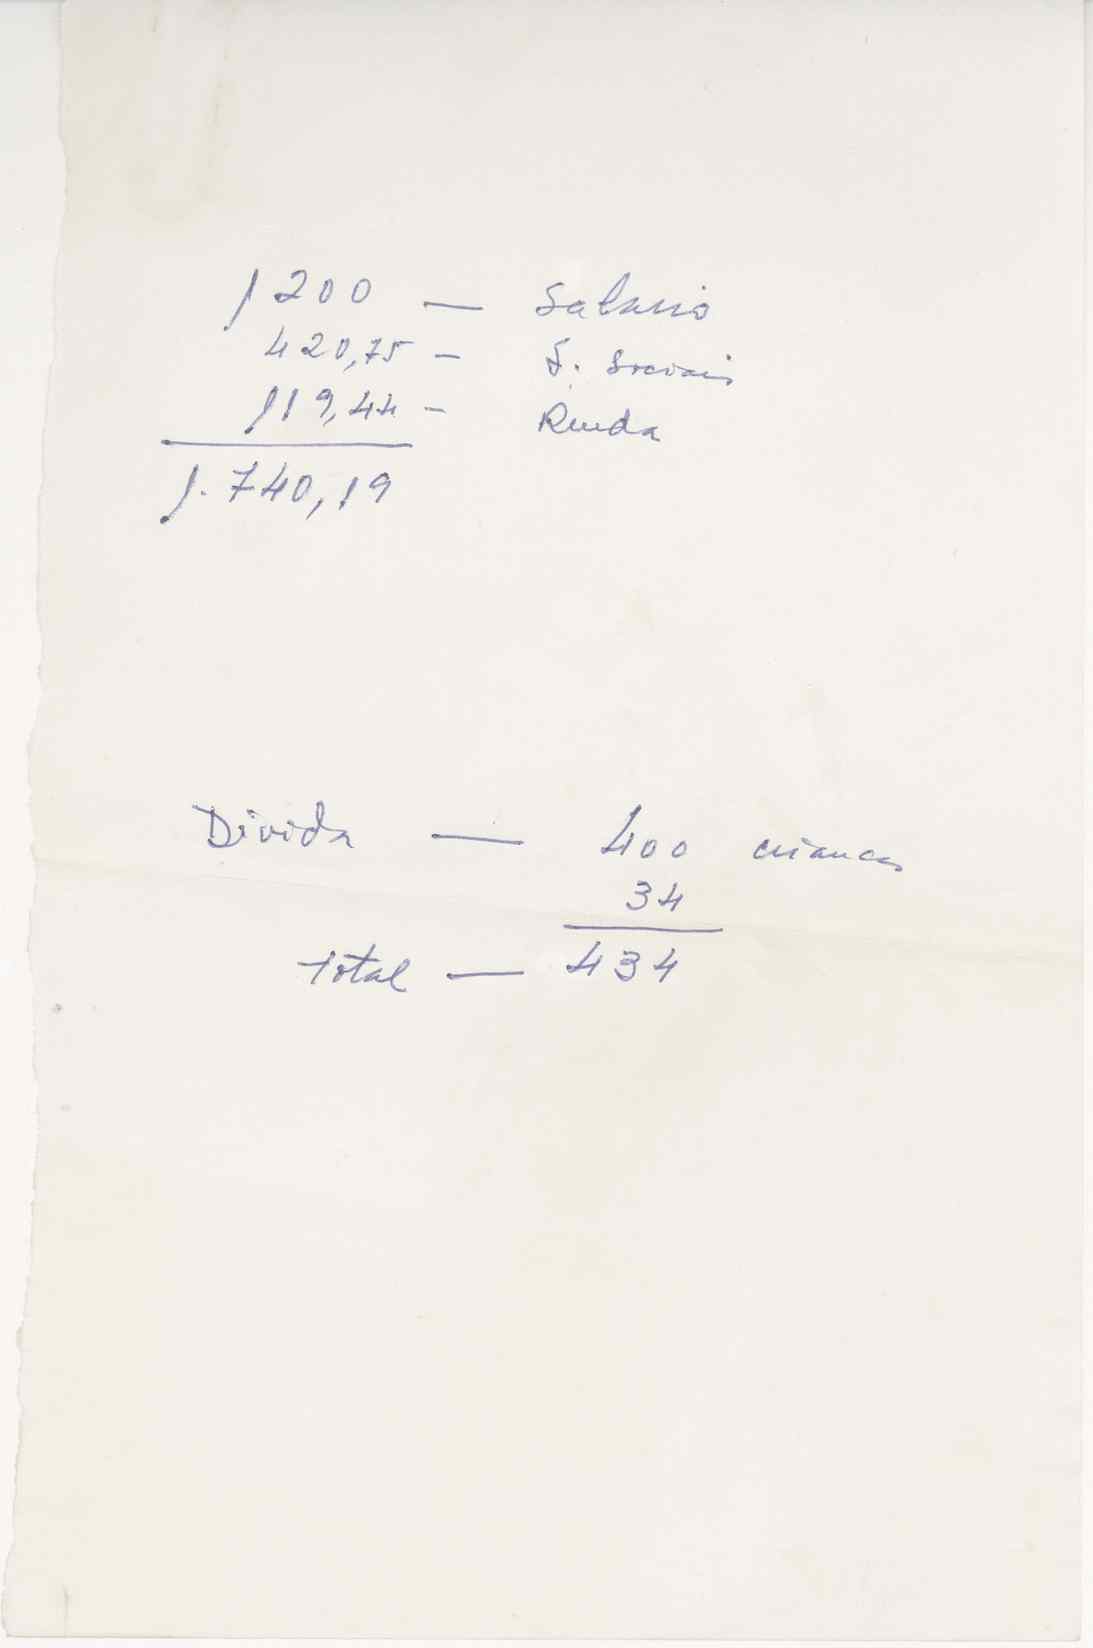 1200 — Salario
420,75 - S. Sociais
119,44 - Renda
1.740,19
Divida — 400 criancas
34
Total — 434